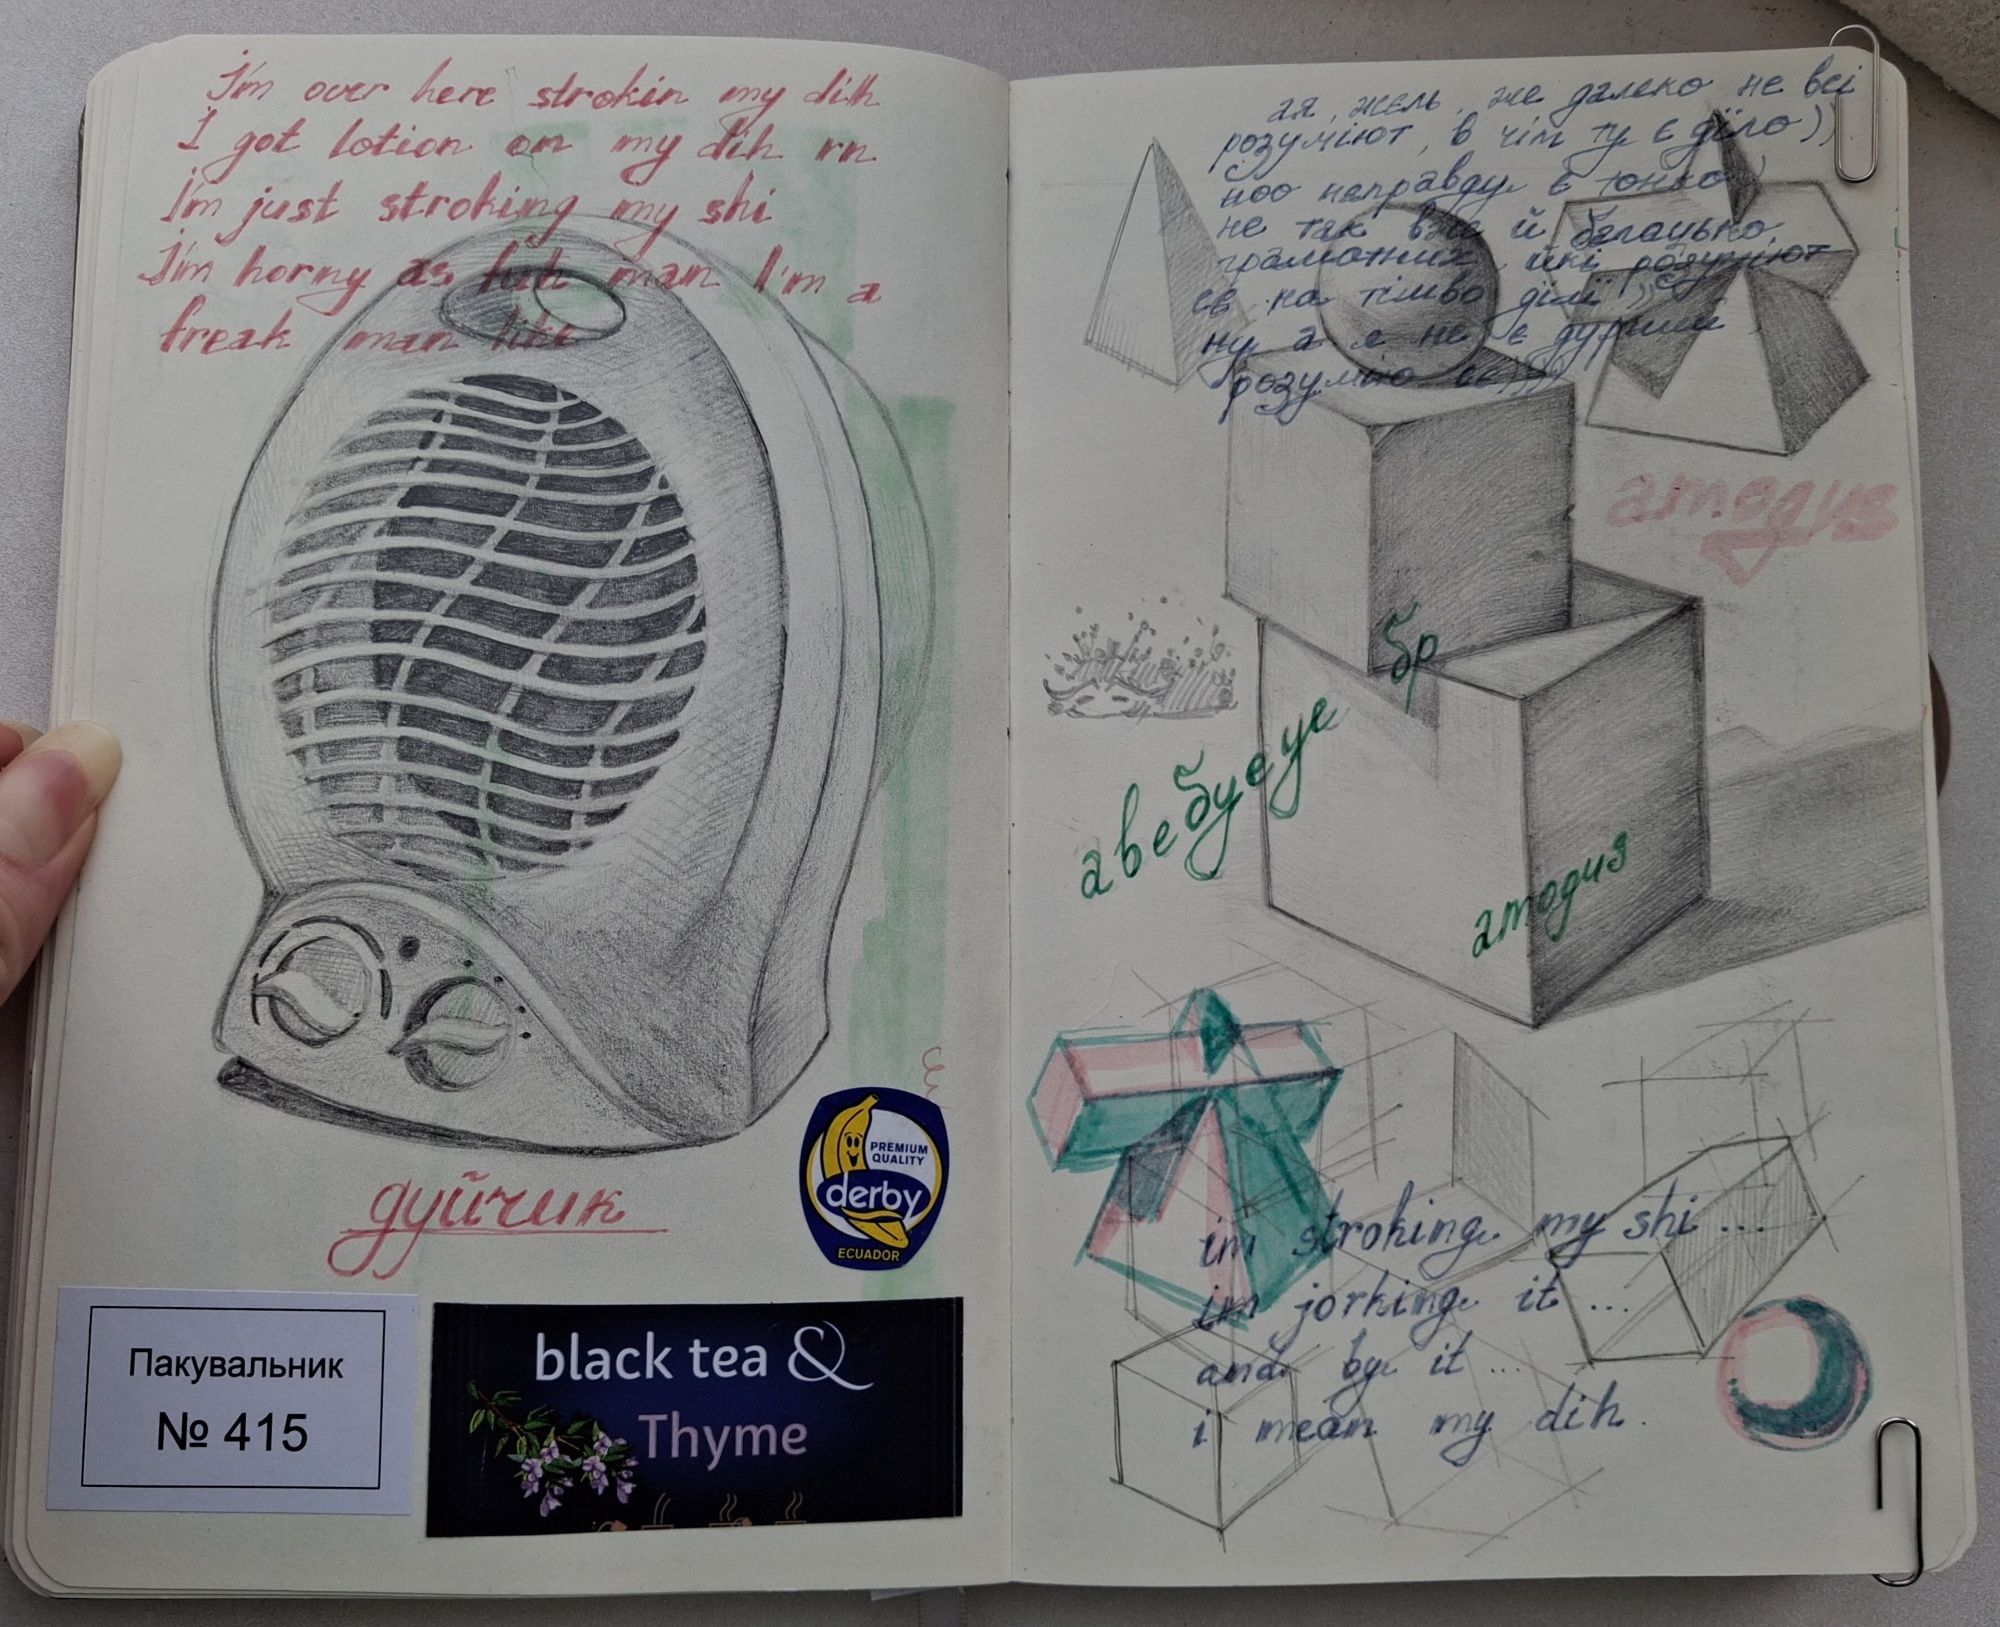 I'm over here strokin my dih
I got lotion on my dih rn
I'm just stroking my shi
I'm horny as fuh man I'm a
freak man like
дуйчик
PREMIUM
QUALITY
derby
ECUADOR
Пакувальник
№ 415
black tea &
Thyme
ая, жель, же далеко не всі
розуміют, в чім ту є діло))
і
ноо направду є тонко
не так вже й багацько
грамотних, йкі розуміют
се на тімво ділі
ну а я не є дурний,
розумію сє)))
атодия
бр
авебуеуе
атодия
im stroking my shi ...
im jorking it ...
and by it ...
i mean my dih.